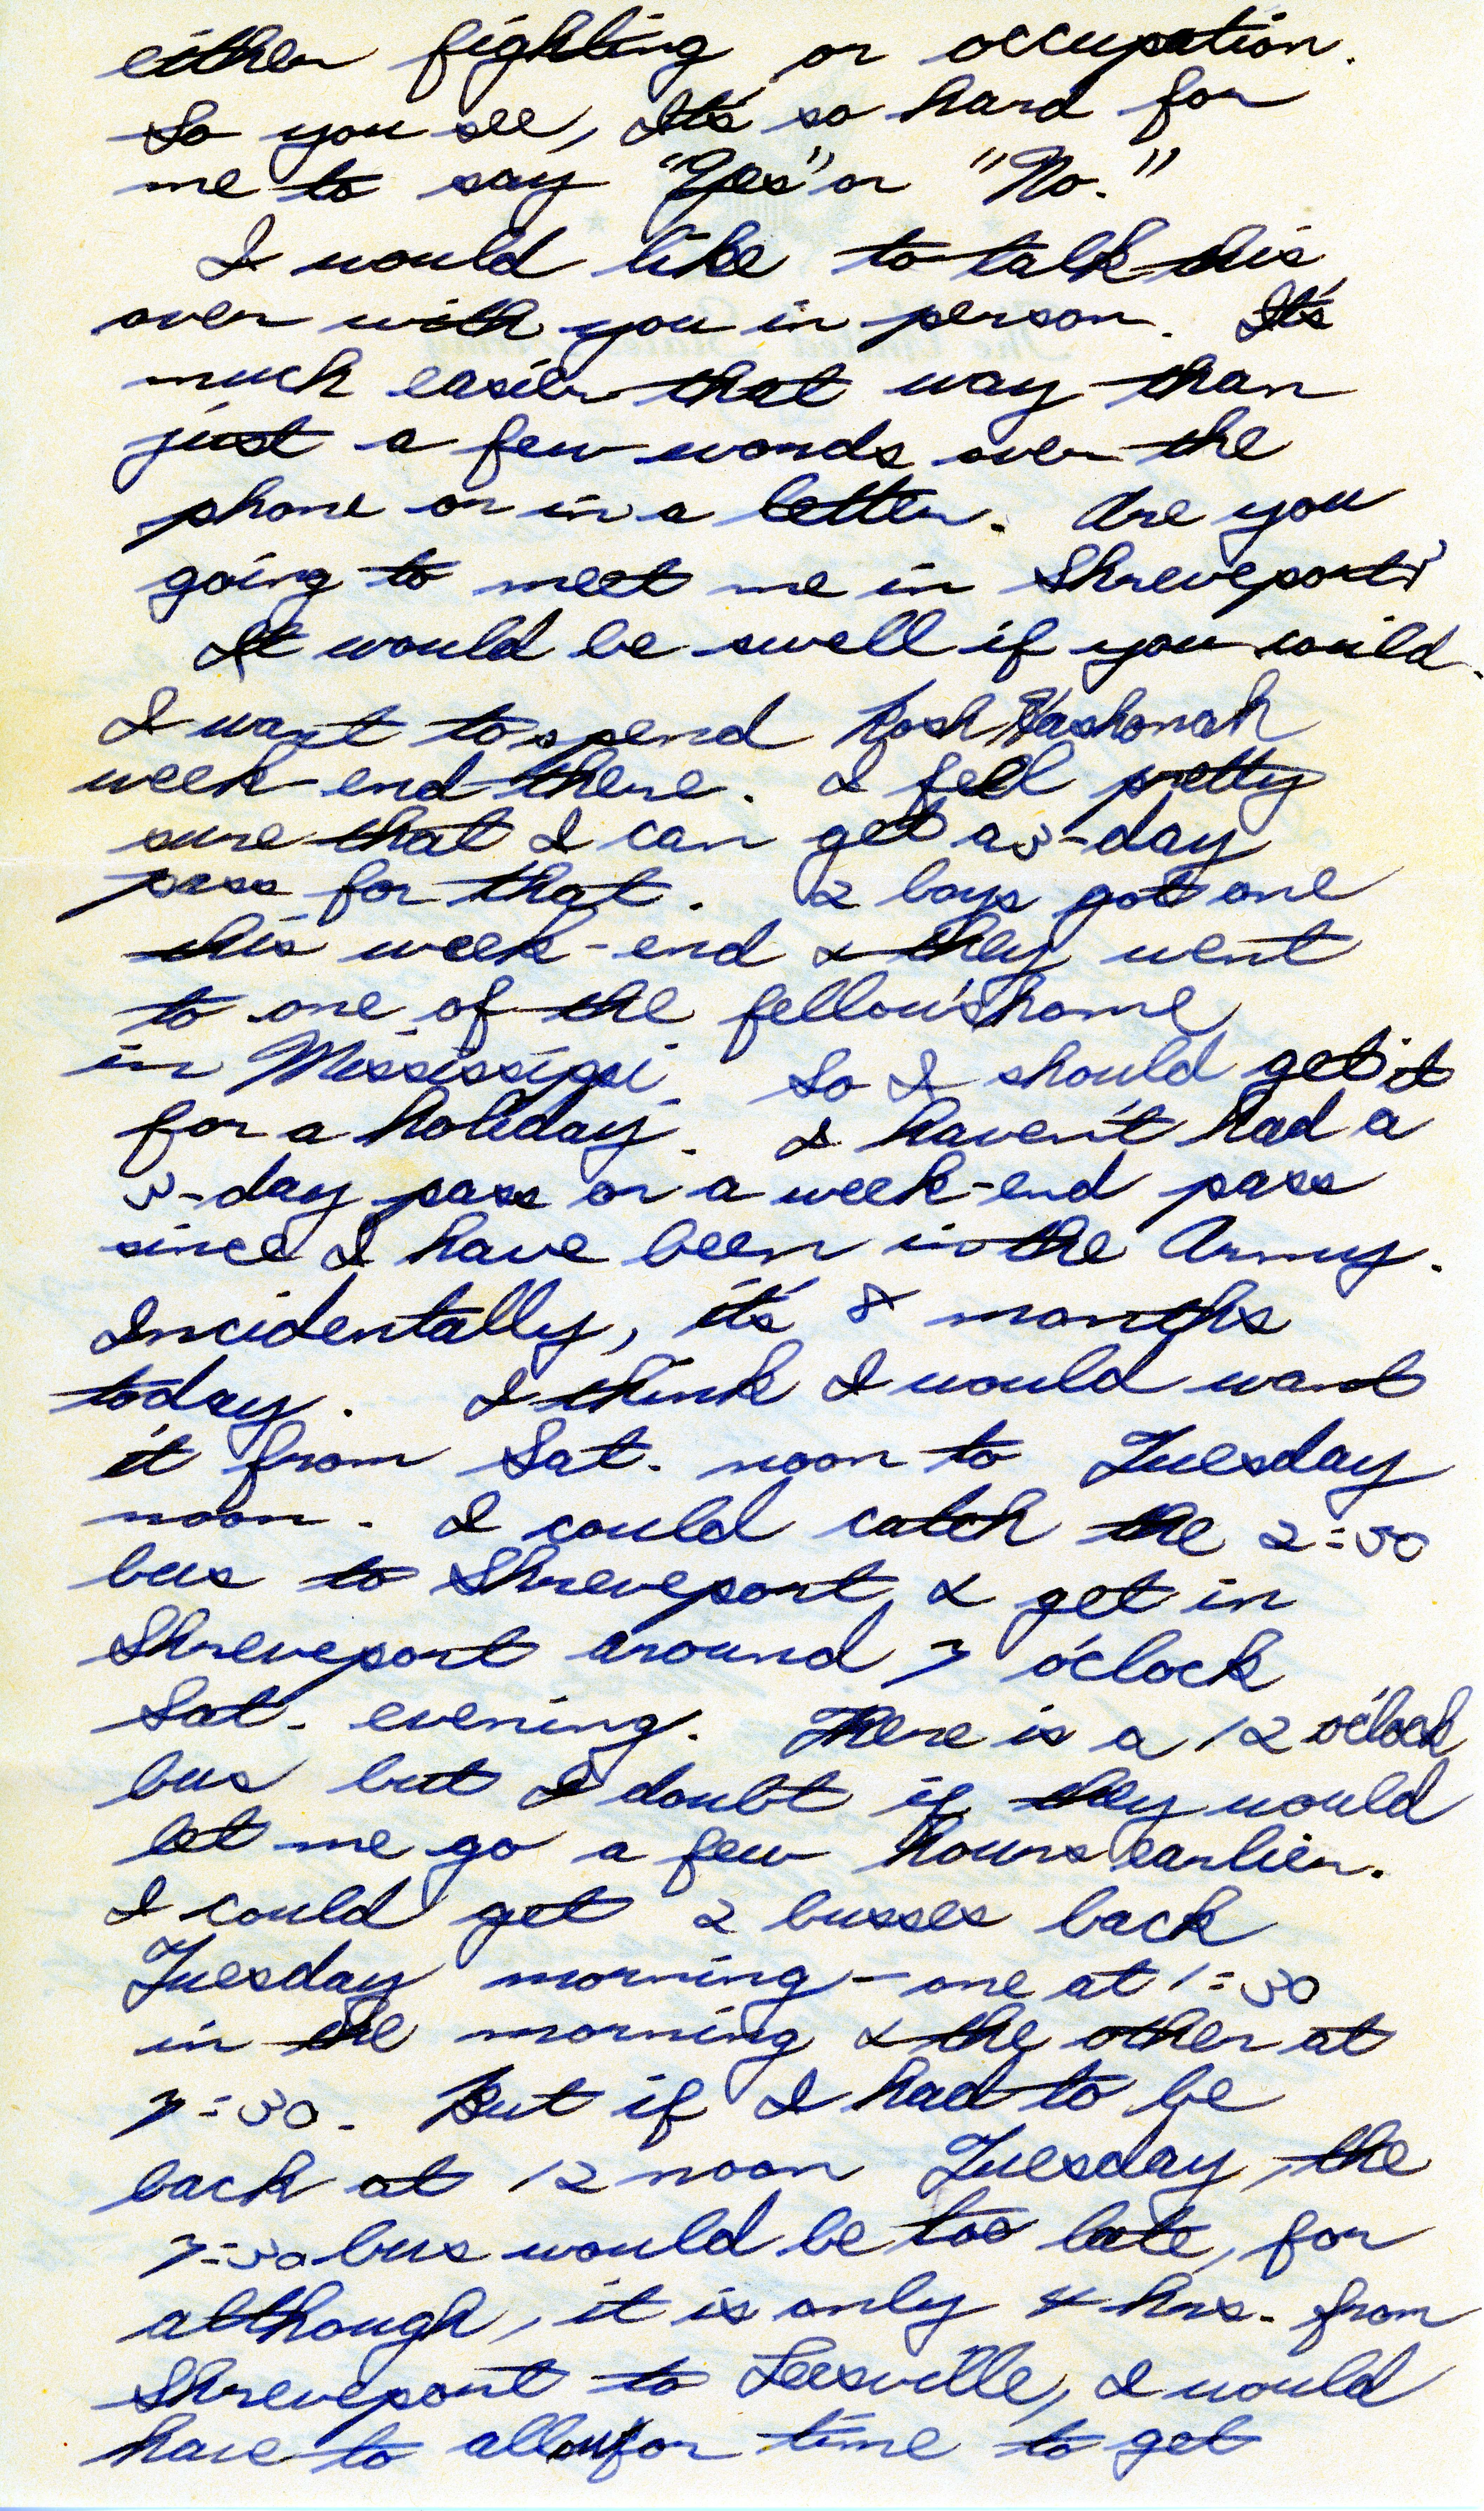 either fighting or occupation.
So you see, It's so hard for
me to say "Yes" or "No."
I would like to talk this
over with you in person. It's
much easier that way than
just a few words over the
phone or in a letter. Are you
going to meet me in Shreveport?
It would be swell if you could.
I want to spend Rosh Hashonah
week-end there. I feel pretty
sure that I can get a 3-day
pass for that. 2 boys got one
this week-end & they went
to one of the fellow's home
in Mississippi. So I should get it
for a holiday. I haven't had a
3-day pass or a week-end pass
since I have been in the Army.
Incidentally, it's 8 months
today. I think I would want
it from Sat. noon to Tuesday
noon. I could catch the 2:30
bus to Shreveport & get in
Shreveport around 7 o'clock
Sat. evening. There is a 12 o'clock
bus but I doubt if they would
let me go a few hours earlier.
I could get 2 busses back
Tuesday morning - one at 1:30
in the morning & the other at
7:30. But if I had to be
back at 12 noon Tuesday, the
7:30 bus would be too late, for
although, it is only 4 hrs. from
Shreveport to Leesville, I would
have to allow for time to get